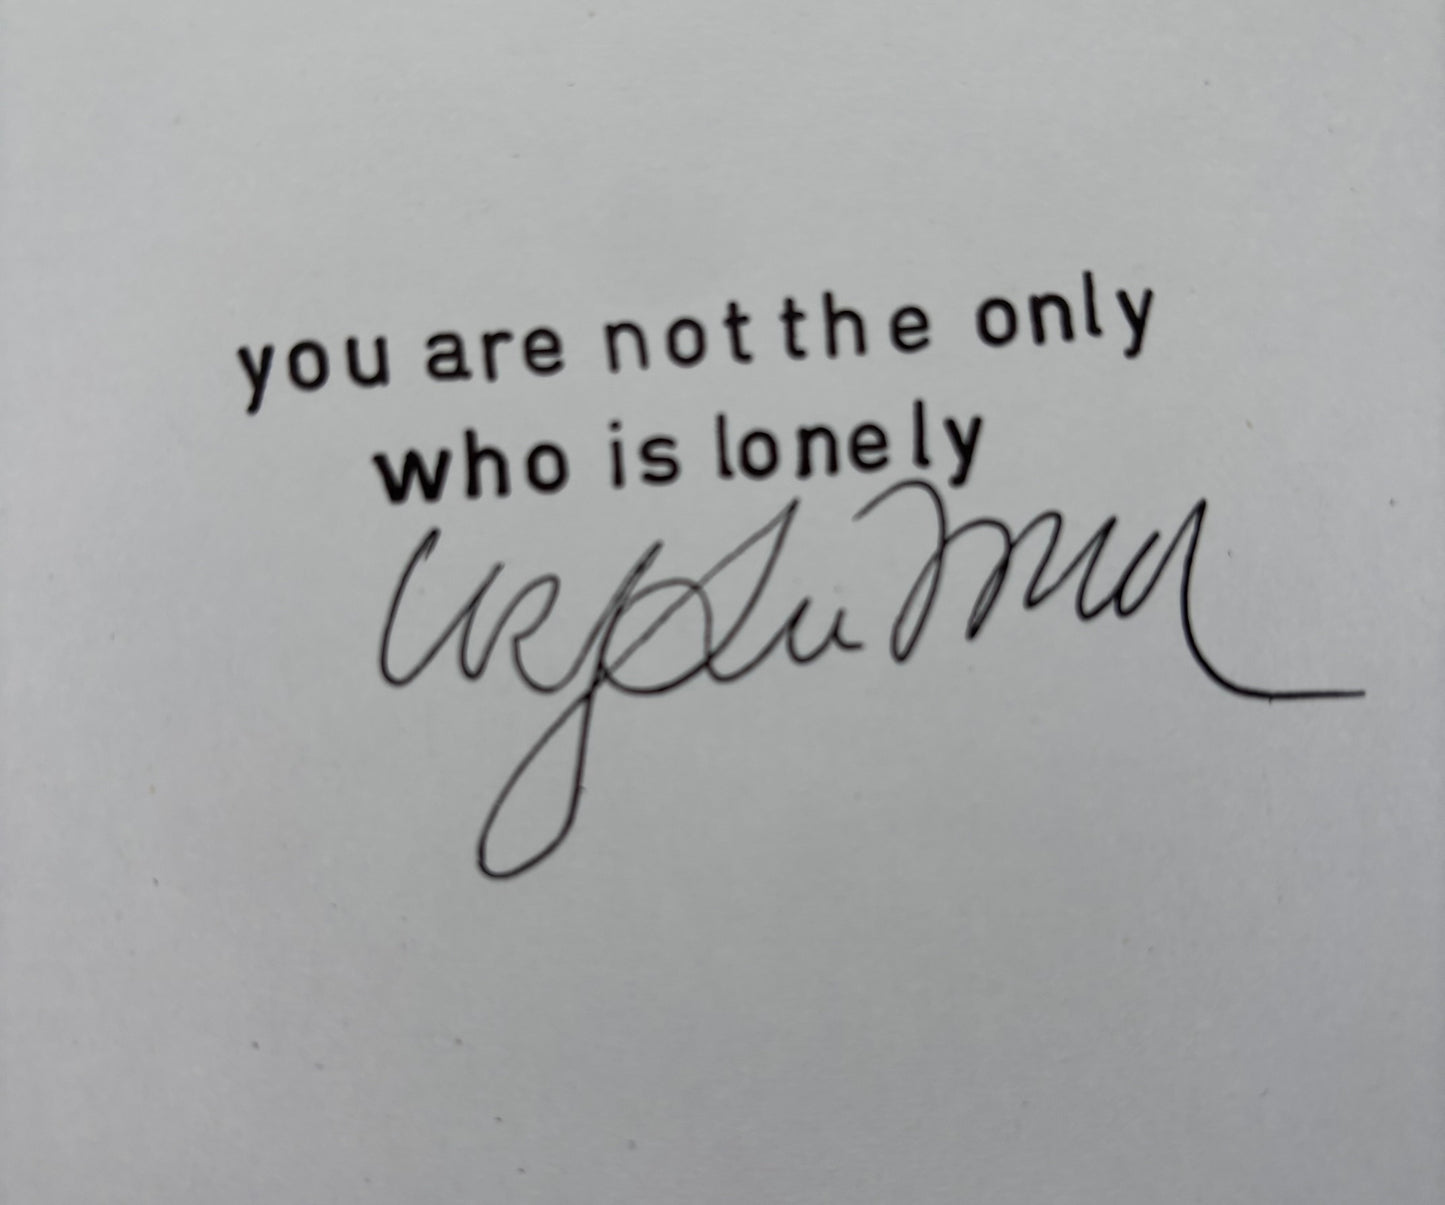 you are not the only
who is lonely